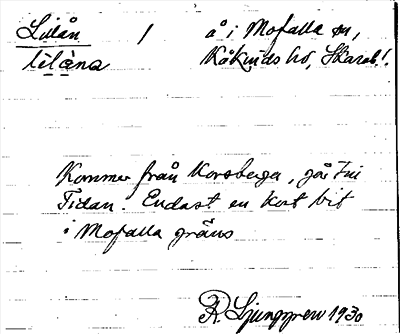 Lillån 1 å i Mofalla sn,
lìlàna Kåkinds hd, Skarab.l.
Kommer från Korsberga, går till
Tidan. Endast en kort bit
i Mofalla gräns
R. Ljunggren 1930